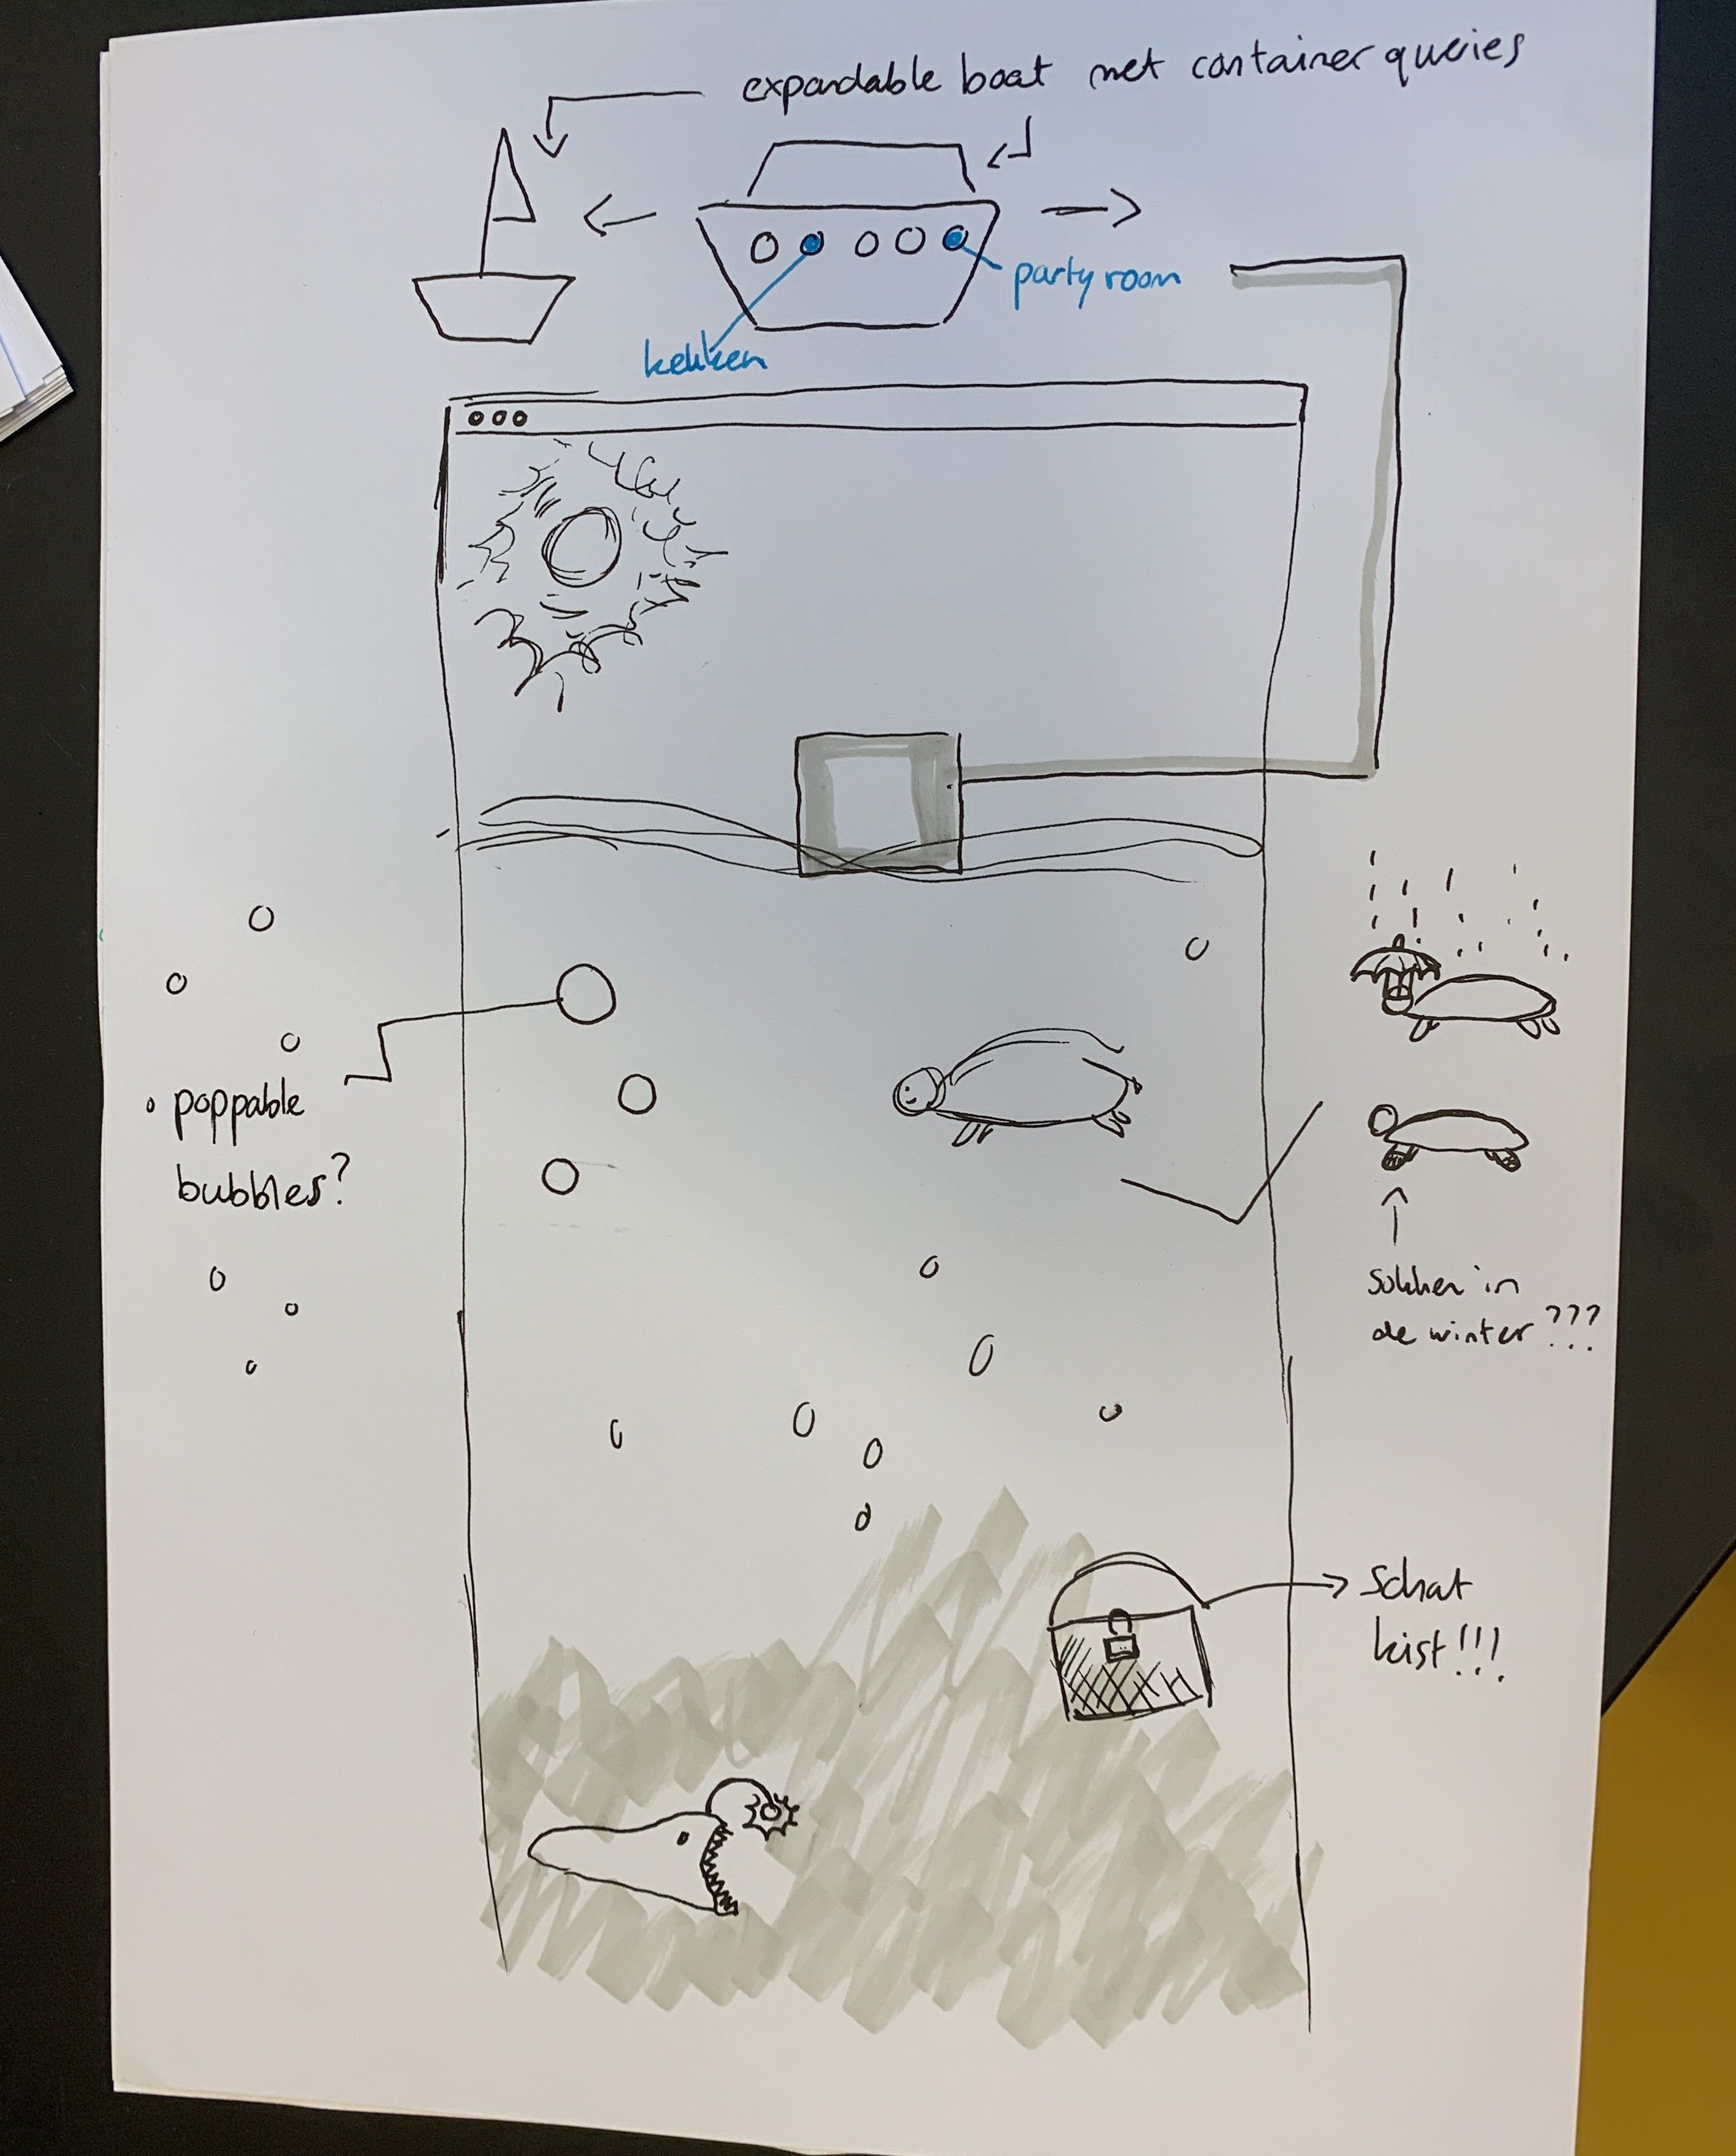 expandable boat met container queries
party room
keuken
poppable
bubbles?
sokken in
de winter ???
schat
kist!!!